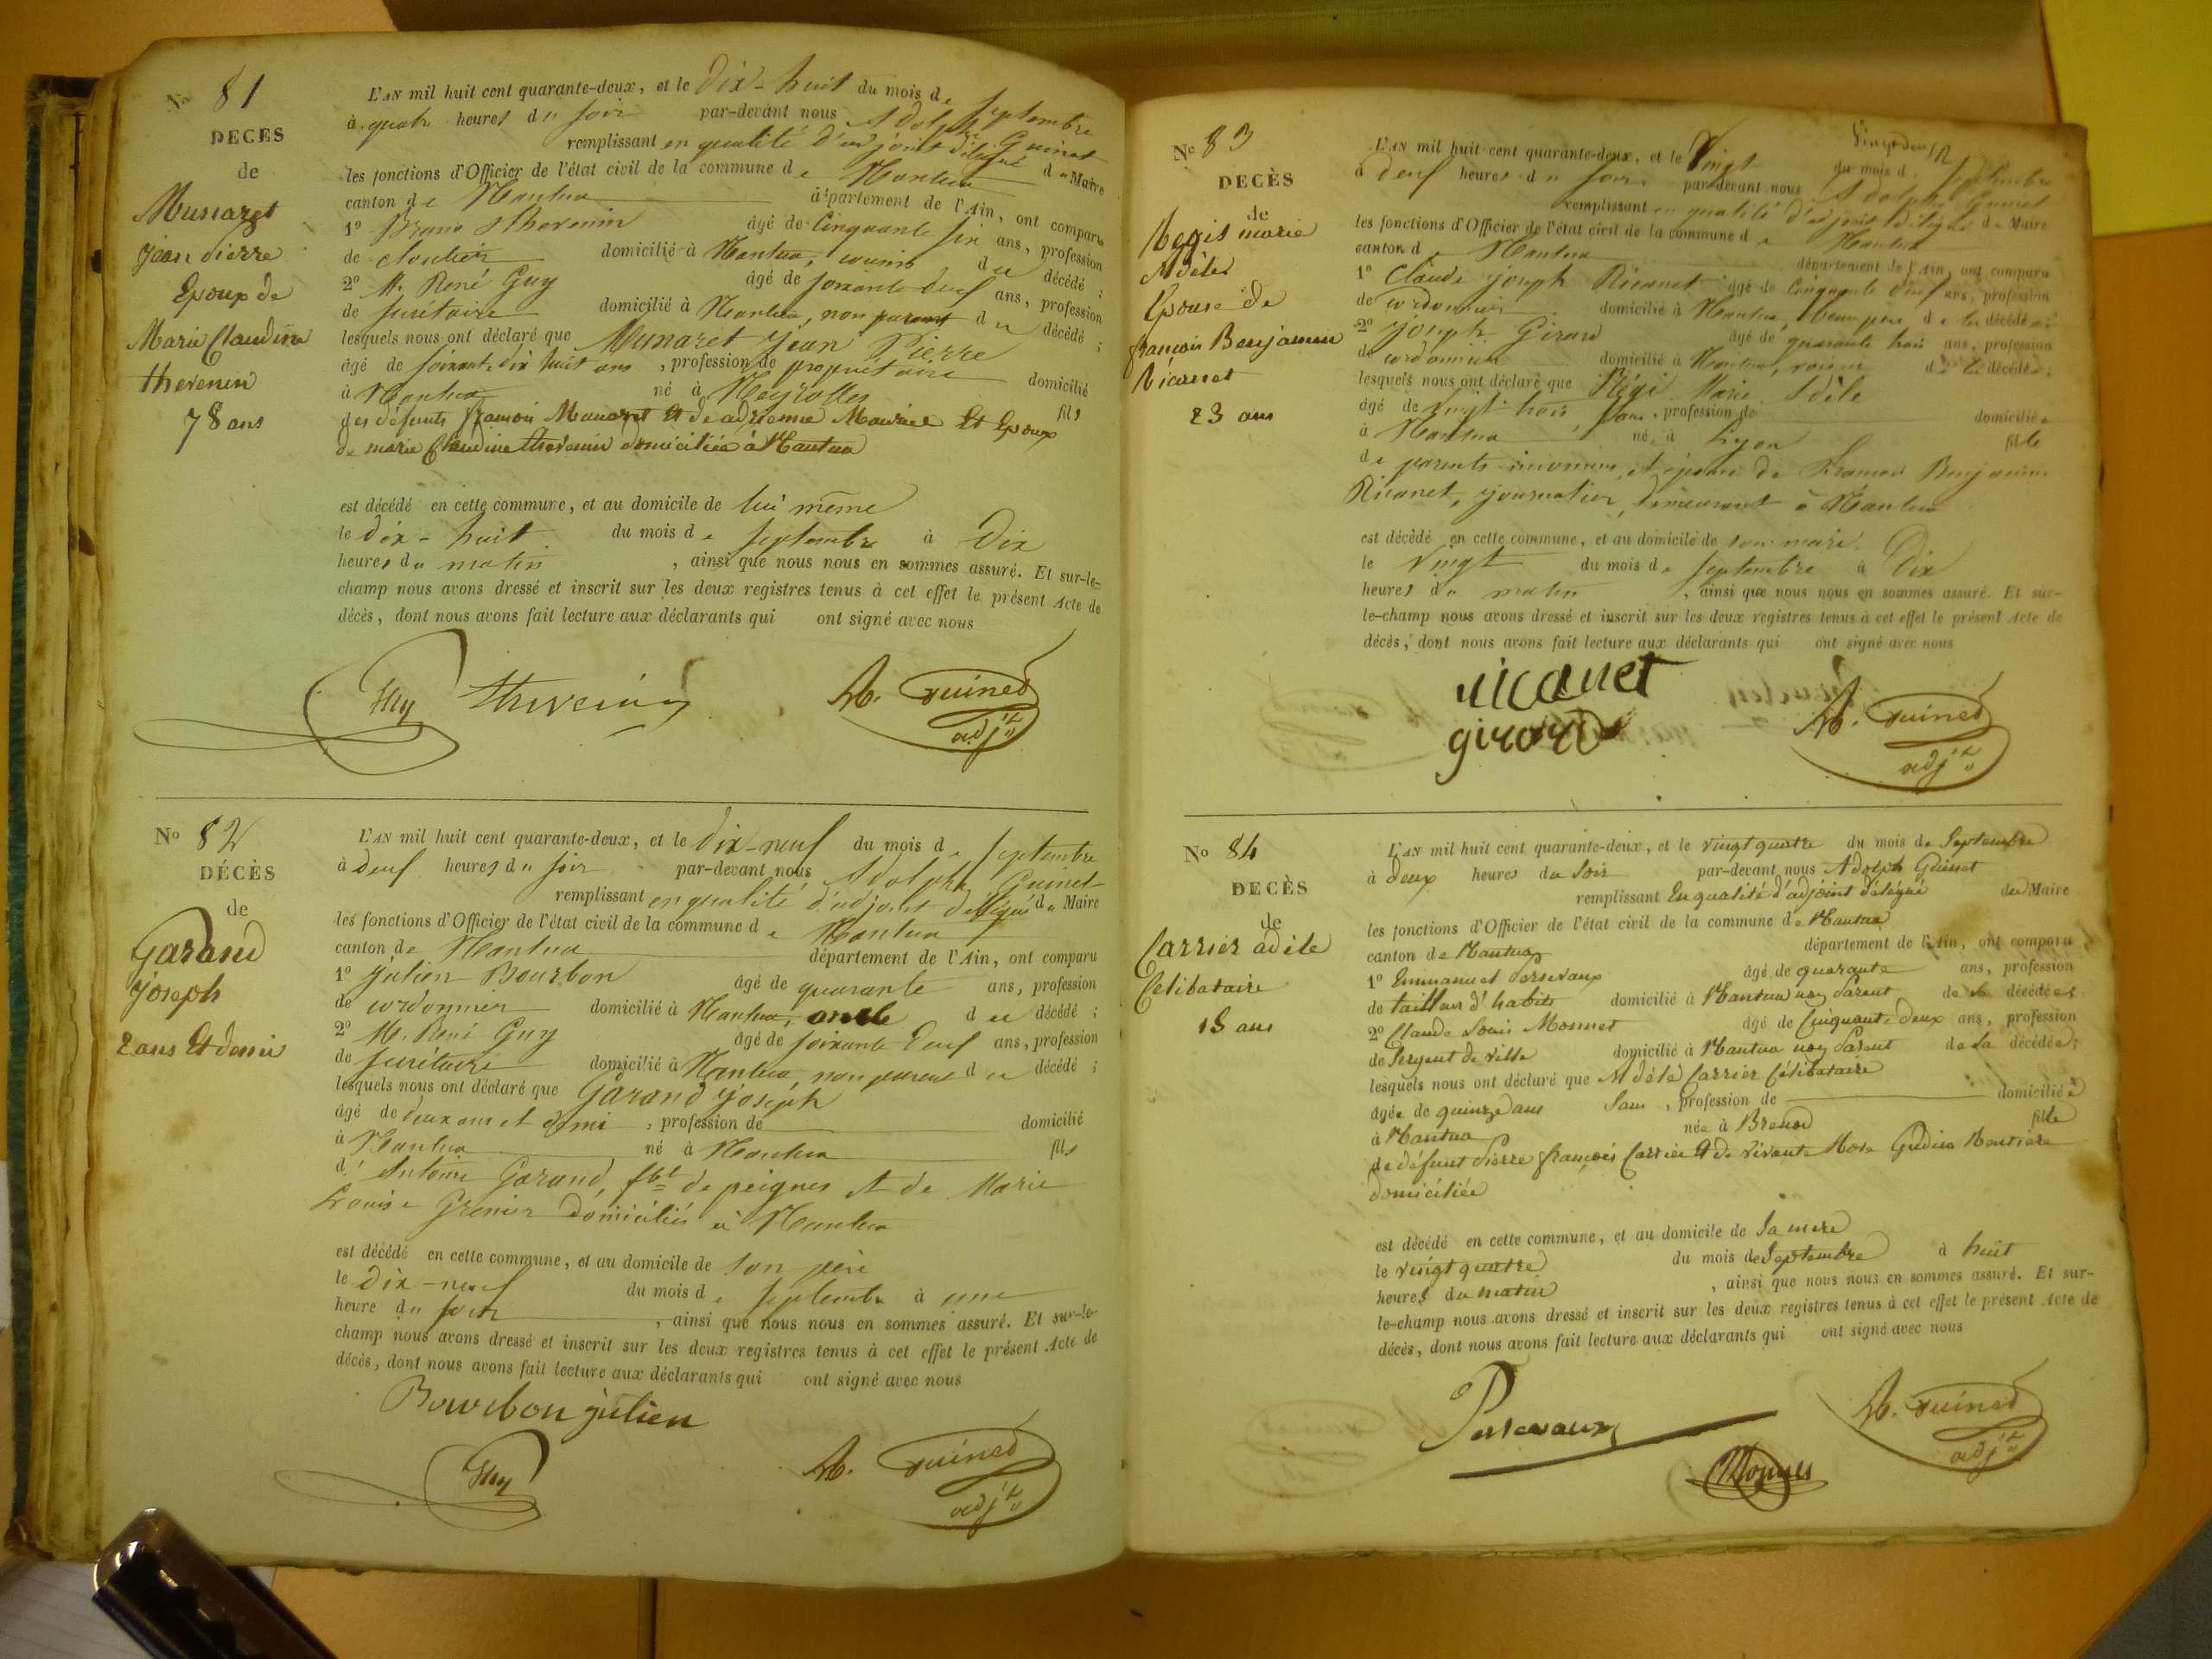 No 81
DECES
de
Munaret
jean pierre
Epoux de
Marie Claudine
thevenin
78 ans
L'AN mil huit cent quarante-deux, et le dix-huit du mois de septembre
à quatre heures du soir par-devant nous Adolphe Guinet
remplissant en qualité d'adjoint délégué du Maire
les fonctions d'Officier de l'état civil de la commune de Nantua
canton de Nantua département de l'Ain, ont comparu
1º Bruno Thevenin âgé de Cinquante six ans, profession
de cloutier domicilié à Nantua, cousin du décédé ;
2º M. René Guy âgé de soixante deuf ans, profession
de secrétaire domicilié à Nantua, non parent du décédé ;
lesquels nous ont déclaré que Munaret Jean Pierre
âgé de soixante dix huit ans , profession de propriétaire domicilié
à Nantua né à Neyrolles fils
des défunts françois Munaret Et de adrienne Et Epoux
de marie Claudine thevenin domiciliée à Nantua
est décédé en cette commune, et au domicile de lui même
le dix-huit du mois de septembre à Dix
heures du matin , ainsi que nous nous en sommes assuré. Et sur-le-
champ nous avons dressé et inscrit sur les deux registres tenus à cet effet le présent Acte de
décès, dont nous avons fait lecture aux déclarants qui ont signé avec nous
Guy thevenin A. Guinet
adjt
No 82
DÉCÈS
de
Garand
joseph
2 ans Et demi
L'AN mil huit cent quarante-deux, et le dix-neuf du mois de septembre
à deuf heures du soir par-devant nous Adolphe Guinet
remplissant en qualité d'adjoint délégué du Maire
les fonctions d'Officier de l'état civil de la commune de Nantua
canton de Nantua département de l'Ain, ont comparu
1º Julien Bourbon âgé de quarante ans, profession
de cordonnier domicilié à Nantua, oncle du décédé ;
2º M. René Guy âgé de soixante deuf ans, profession
de secrétaire domicilié à Nantua, non parent du décédé ;
lesquels nous ont déclaré que Garand joseph
âgé de deux ans et demi , profession de domicilié
à Nantua né à Nantua fils
d'Antoine Garand, fbt de peignes et de Marie
Louise Grenier domiciliés à Nantua
est décédé en cette commune, et au domicile de son père
le dix-neuf du mois de septembre à une
heure du soir , ainsi que nous nous en sommes assuré. Et sur-le-
champ nous avons dressé et inscrit sur les deux registres tenus à cet effet le présent Acte de
décès, dont nous avons fait lecture aux déclarants qui ont signé avec nous
Bourbon julien
Guy A. Guinet
adjt
No 83
DECÈS
de
Regis marie
Adèle
Epouse de
françois Benjamin
Ricanet
23 ans
L'AN mil huit cent quarante-deux, et le Vingt du mois de septembre
à deuf heures du soir par-devant nous Adolphe Guinet
remplissant en qualité d'adjoint délégué du Maire
les fonctions d'Officier de l'état civil de la commune de Nantua
canton de Nantua département de l'Ain, ont comparu
1º Claude joseph Ricanet âgé de Cinquante deuf ans, profession
de cordonnier domicilié à Nantua, beau père de la décédée ;
2º joseph Girard âgé de quarante trois ans, profession
de cordonnier domicilié à Nantua, voisin de la décédée ;
lesquels nous ont déclaré que Régi Marie Adèle
âgé de vingt trois ans, sans , profession de domiciliée
à Nantua né à Lyon fille
de parents inconnus, et épouse de françois Benjamin
Ricanet, journalier, demeurant à Nantua
est décédé en cette commune, et au domicile de son mari.
le Vingt du mois de septembre à Dix
heures du matin , ainsi que nous nous en sommes assuré. Et sur-
le-champ nous avons dressé et inscrit sur les deux registres tenus à cet effet le présent Acte de
décès, dont nous avons fait lecture aux déclarants qui ont signé avec nous
ricanet
girard A. Guinet
adjt
No 84
DECÈS
de
Carrier adèle
Célibataire
15 ans
L'AN mil huit cent quarante-deux, et le vingt quatre du mois de Septembre
à deux heures du Soir par-devant nous Adolph Guinet
remplissant En qualité d'adjoint délégué du Maire
les fonctions d'Officier de l'état civil de la commune de Nantua
canton de Nantua département de l'Ain, ont comparu
1º Emmanuel Persevaux âgé de quarante ans, profession
de tailleur d'habits domicilié à Nantua non Parent de la décédée ;
2º Claude Louis Monnet âgé de Cinquante deux ans, profession
de Sergent de ville domicilié à Nantua non Parent de la décédée ;
lesquels nous ont déclaré que Adèle Carrier Célibataire
âgée de quinze ans Sans , profession de domiciliée
à Nantua née à Brenod fille
de défunt Pierre françois Carrier Et de vivante Rose
domiciliée
est décédé en cette commune, et au domicile de Sa mère
le vingt quatre du mois de Septembre à huit
heures du matin , ainsi que nous nous en sommes assuré. Et sur-
le-champ nous avons dressé et inscrit sur les deux registres tenus à cet effet le présent Acte de
décès, dont nous avons fait lecture aux déclarants qui ont signé avec nous
Persevaux A. Guinet
adjt
Monnet